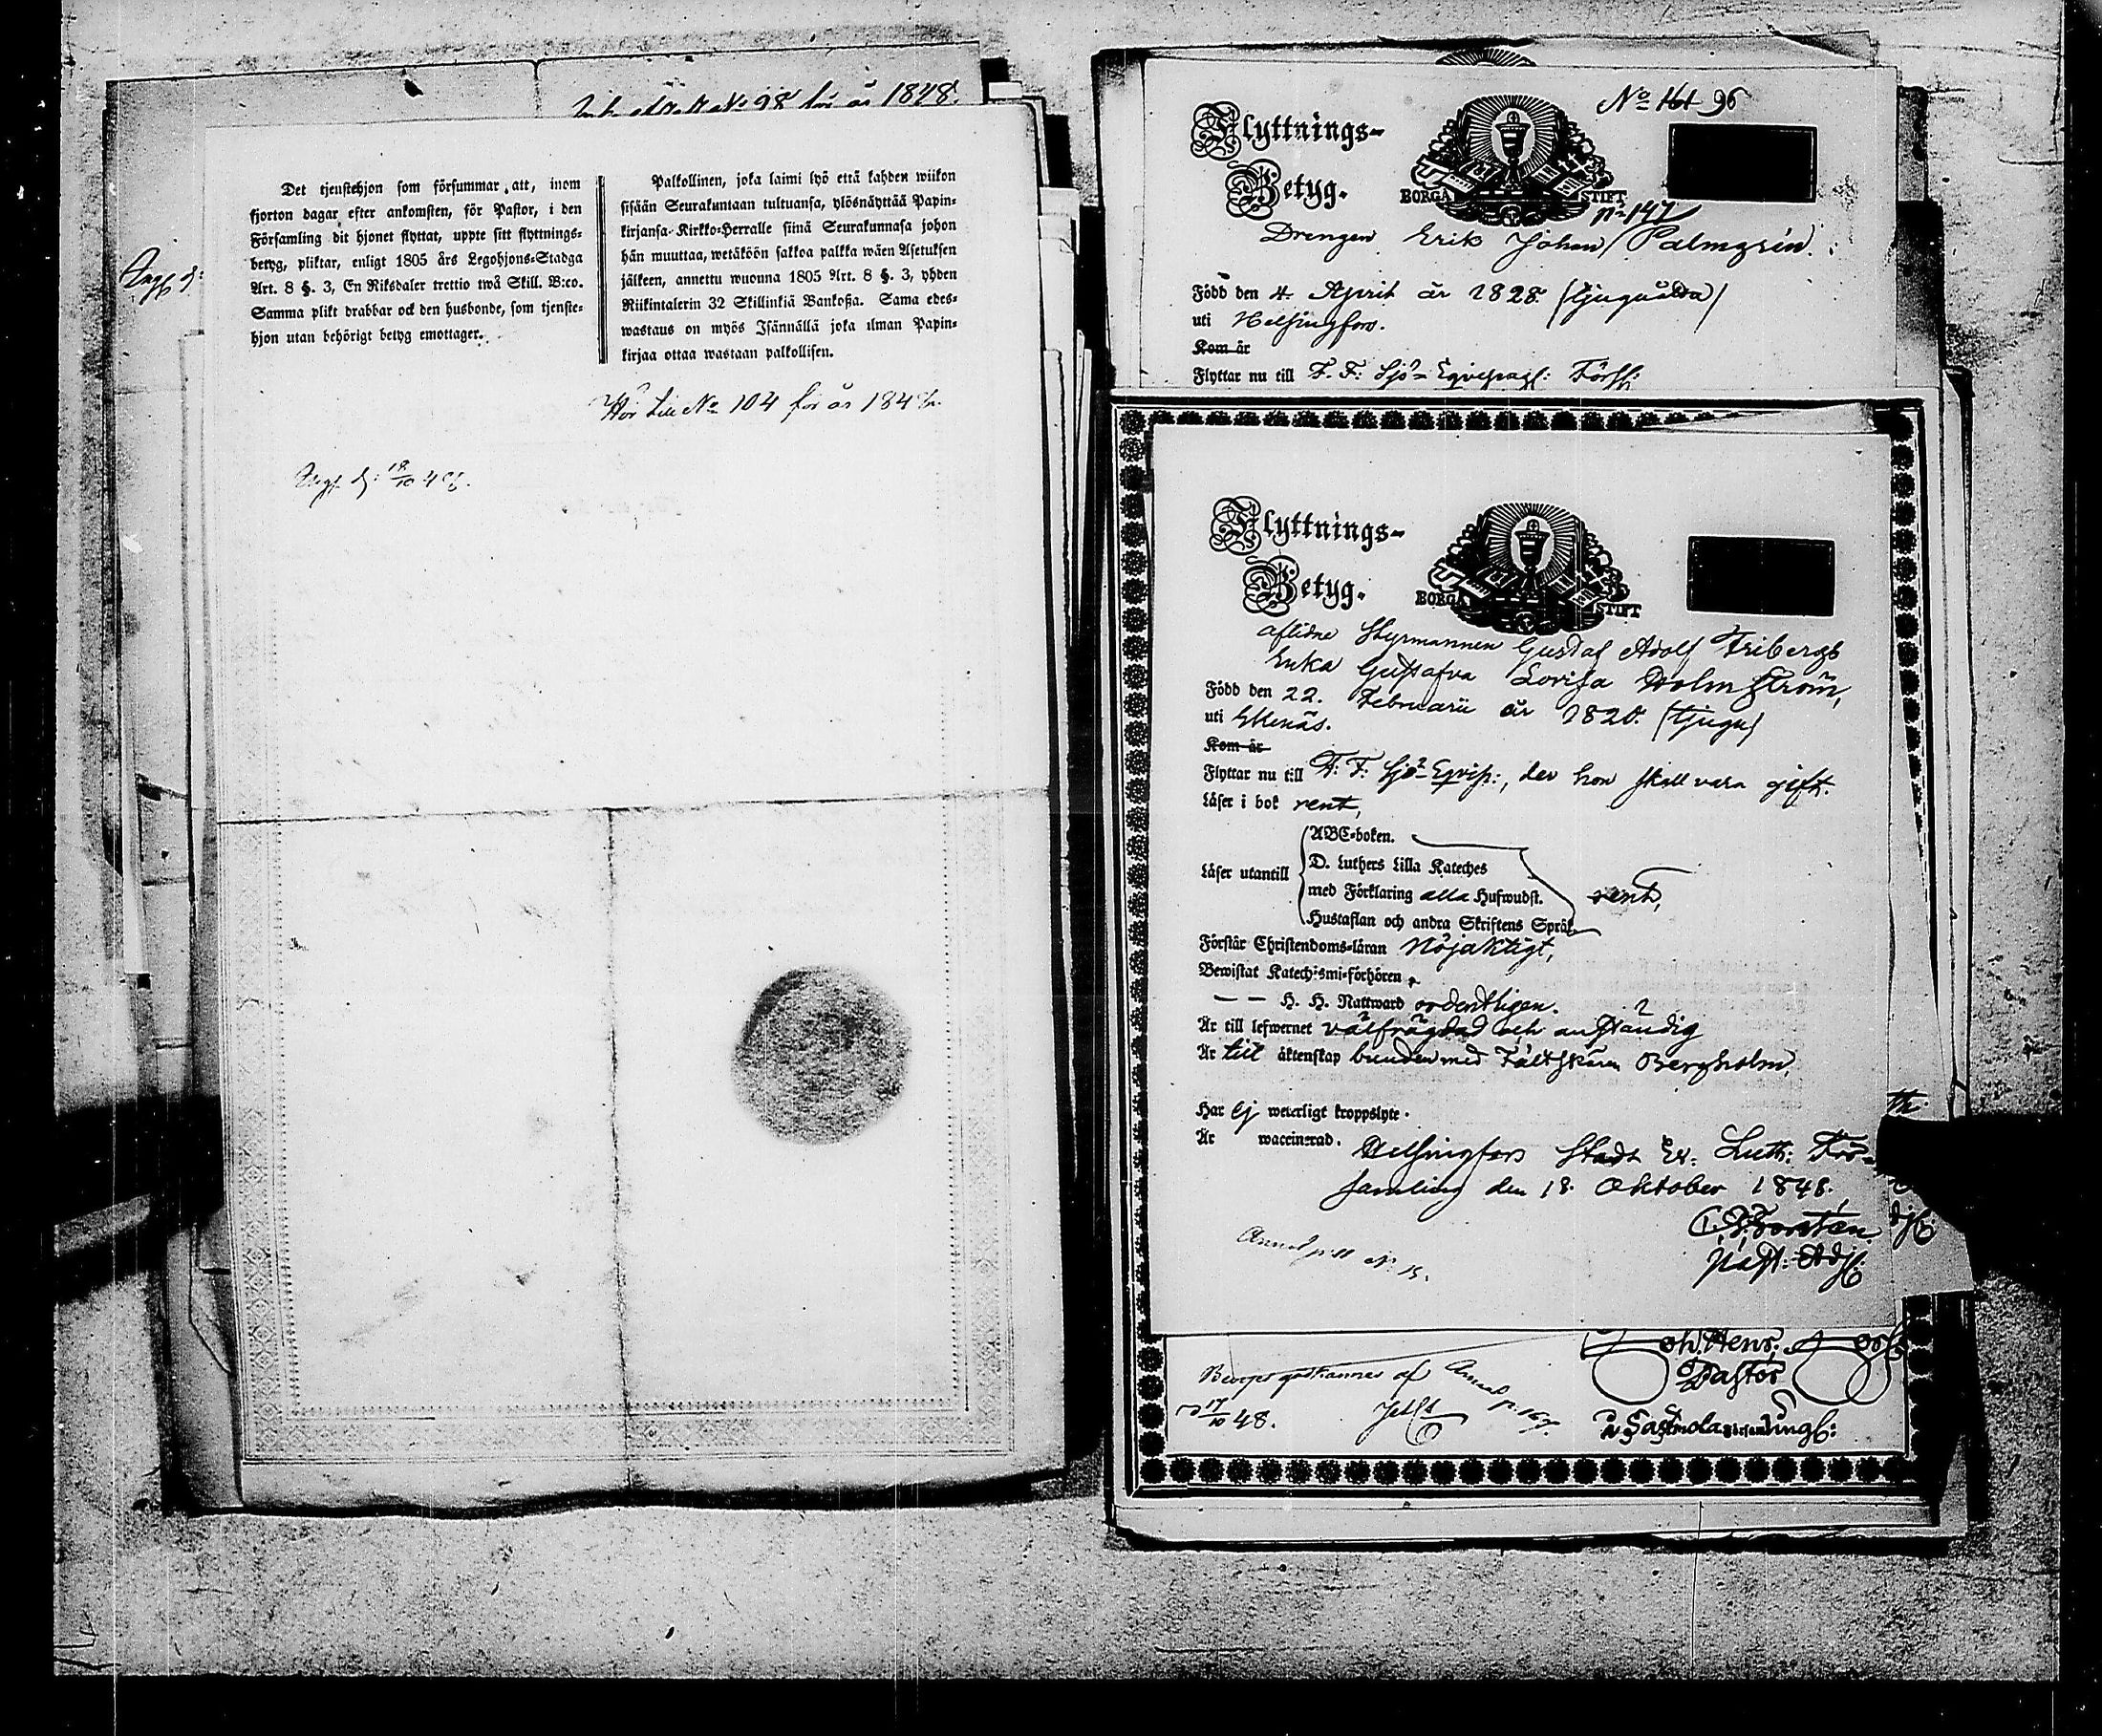 för år 1848.
Det tjenstehjon som försummar att, inom
fjorton dagar efter ankomsten, för Pastor, i den
Församling dit hjonet flyttat, uppte sitt flyttnings-
betyg, pliktar, enligt 1805 års Legohjons-Stadga
Art. 8 §. 3, En Riksdaler trettio twå Skill. B:co.
Samma plikt drabbar ock den husbonde, som tjenste-
hjon utan behörigt betyg emottager.
Palkollinen, joka laimi lyö että kahden wiikon
sisään Seurakuntaan tultuansa, ylösnäyttää Papin-
kirjansa Kirkko-Herralle siinä Seurakunnasa johon
hän muuttaa, wetäköön sakkoa palkka wäen Asetuksen
jälkeen, annettu wuonna 1805 Art. 8 §. 3, yhden
Riikintalerin 32 Skillinkiä Bankosa. Sama edes-
wastaus on myös Isännällä joka ilman Papin-
kirjaa ottaa wastaan palkollisen.
Hör till No 104 för år 1848.
18/10 48.
No 161 96
Flyttnings-
Betyg.
BORGÅ STIFT
p. 147
Drengen Erik Johan Palmgrén.
Född den 4. April år 1828. (tjuguåtta)
uti Helsingfors.
Kom år
Flyttar nu till F. F: Sjö-Eqvipag: Förs:
Flyttnings-
Betyg.
BORGÅ STIFT
aflidne Styrmannen Gustaf Adolf Fribergs
Enka Gustafva Lovisa Holmström,
Född den 22. Februarii år 1820. (tjugu)
uti Ekenäs.
Kom år
Flyttar nu till F: F: Sjö-Eqvip:, der hon skall vara gift.
Läser i bok rent,
Läser utantill
ABC-boken.
D. Luthers Lilla Kateches
med Förklaring alla Hufwudst.
Hustaflan och andra Skriftens Språk
rent,
Förstår Christendoms-läran Nöjaktigt,
Bewistat Katechismi-förhören
— — H. H. Nattward ordentligen.
Är till lefwernet välfrägdad och anständig
Är till äktenskap bunden med Fältskären Bergholm,
Har Ej weterligt kroppslyte.
Är waccinerad.
Helsingfors Stads Ev: Luth: För-
samling den 18. Oktober 1848.
Forstén
Past: Adj:
Annot p 11 No 15.
Joh. Henr.
Pastor
17/10 48.
p. 167.